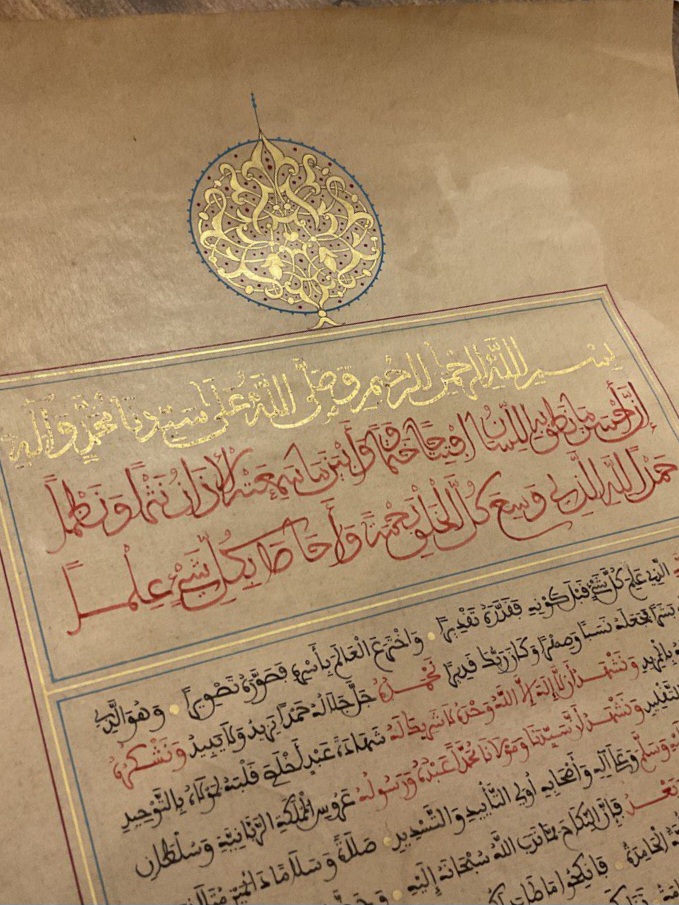 بسم الله الرحمن الرحيم وصلى الله على سيدنا محمد وآله
إن أحسن ما نطق به اللسان افتتاحا وختما وأبهى ما سمعته الآذان نثرا ونظما
حمد الله الذي وسع كل الخلق رحمة وأحاط بكل شيء علما
الذي علم كل شيء قبل كونه فقدره تقديرا واخترع العالم بأسره فصوره تصويرا وهو الذي
بشرا فجعله نسبا وصهرا وكان ربك قديرا نحمده جل جلاله حمدا يزيد ولا يبيد ونشكره
بالمزيد ونشهد أن لا إله إلا الله وحده لا شريك له شهادة عبد أخلص قلبه لمولاه بالتوحيد
ونشهد أن سيدنا ومولانا محمدا عبده ورسوله عروس المملكة الربانية وسلطان
وسلم وعلى آله وأصحابه أولي التأييد والتسديد صلاة وسلاما دائمين
فإن النكاح مما ندب الله سبحانه إليه
فانكحوا ما طاب لكم